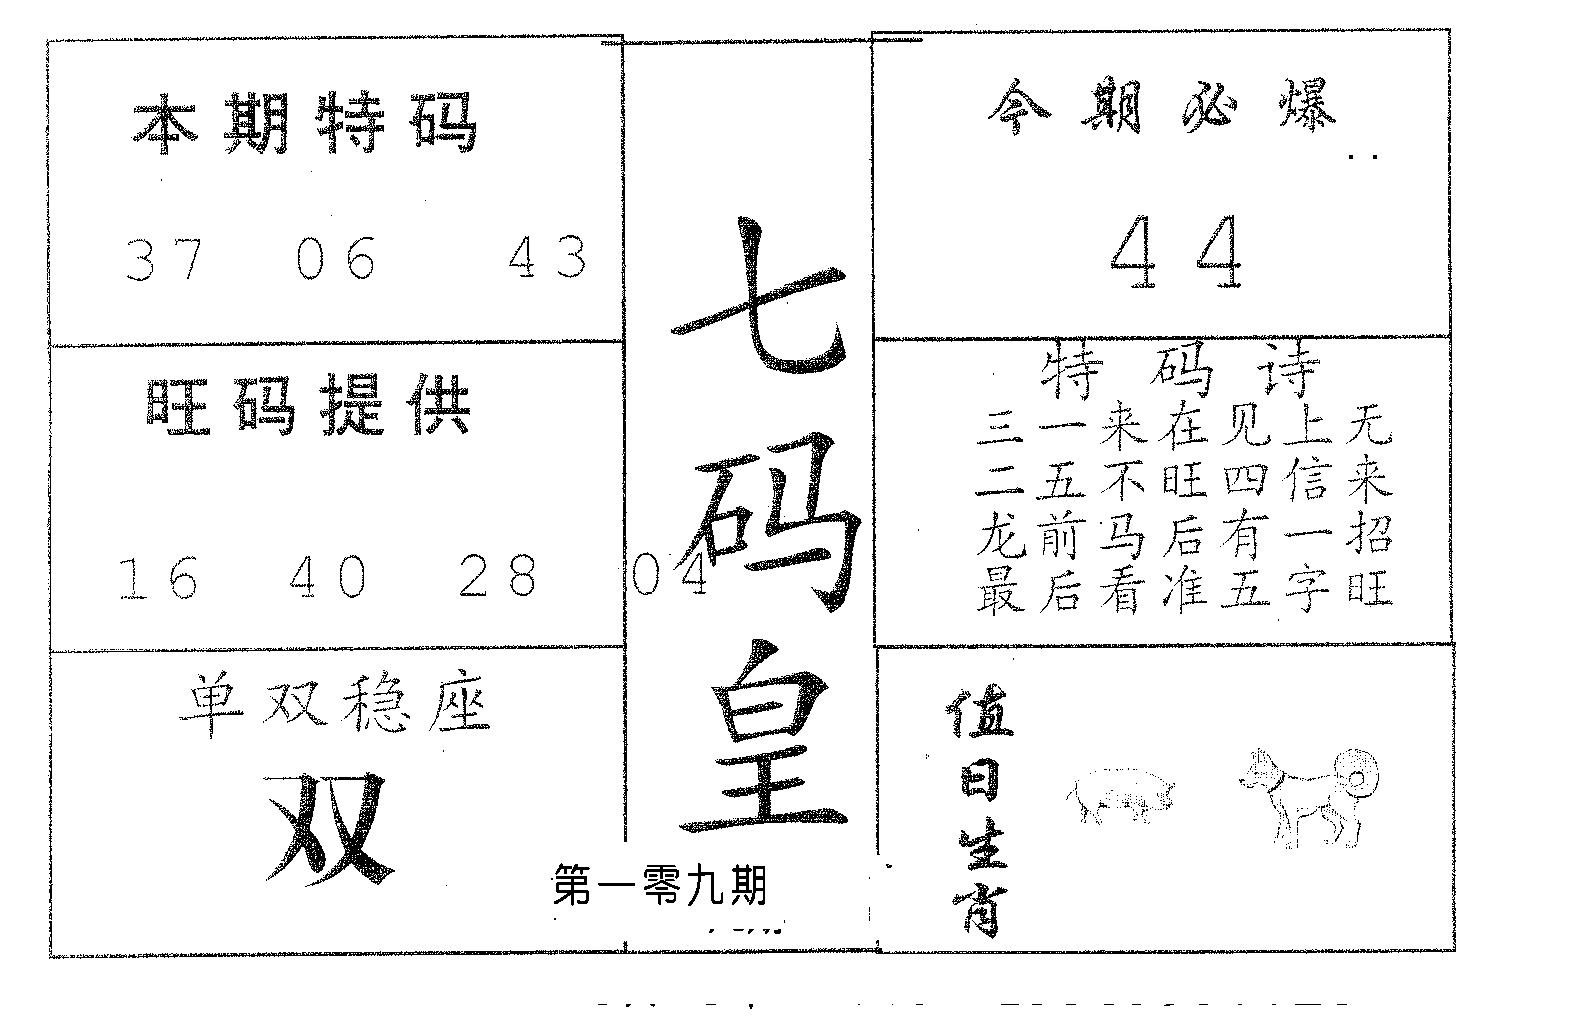 本期特码
37 06 43
旺码提供
16 40 28 04
单双稳座
双
七码皇
第一零九期
今期必爆
44
特码诗
三一来在见上无
二五不旺四信来
龙前马后有一招
最后看准五字旺
值日生肖